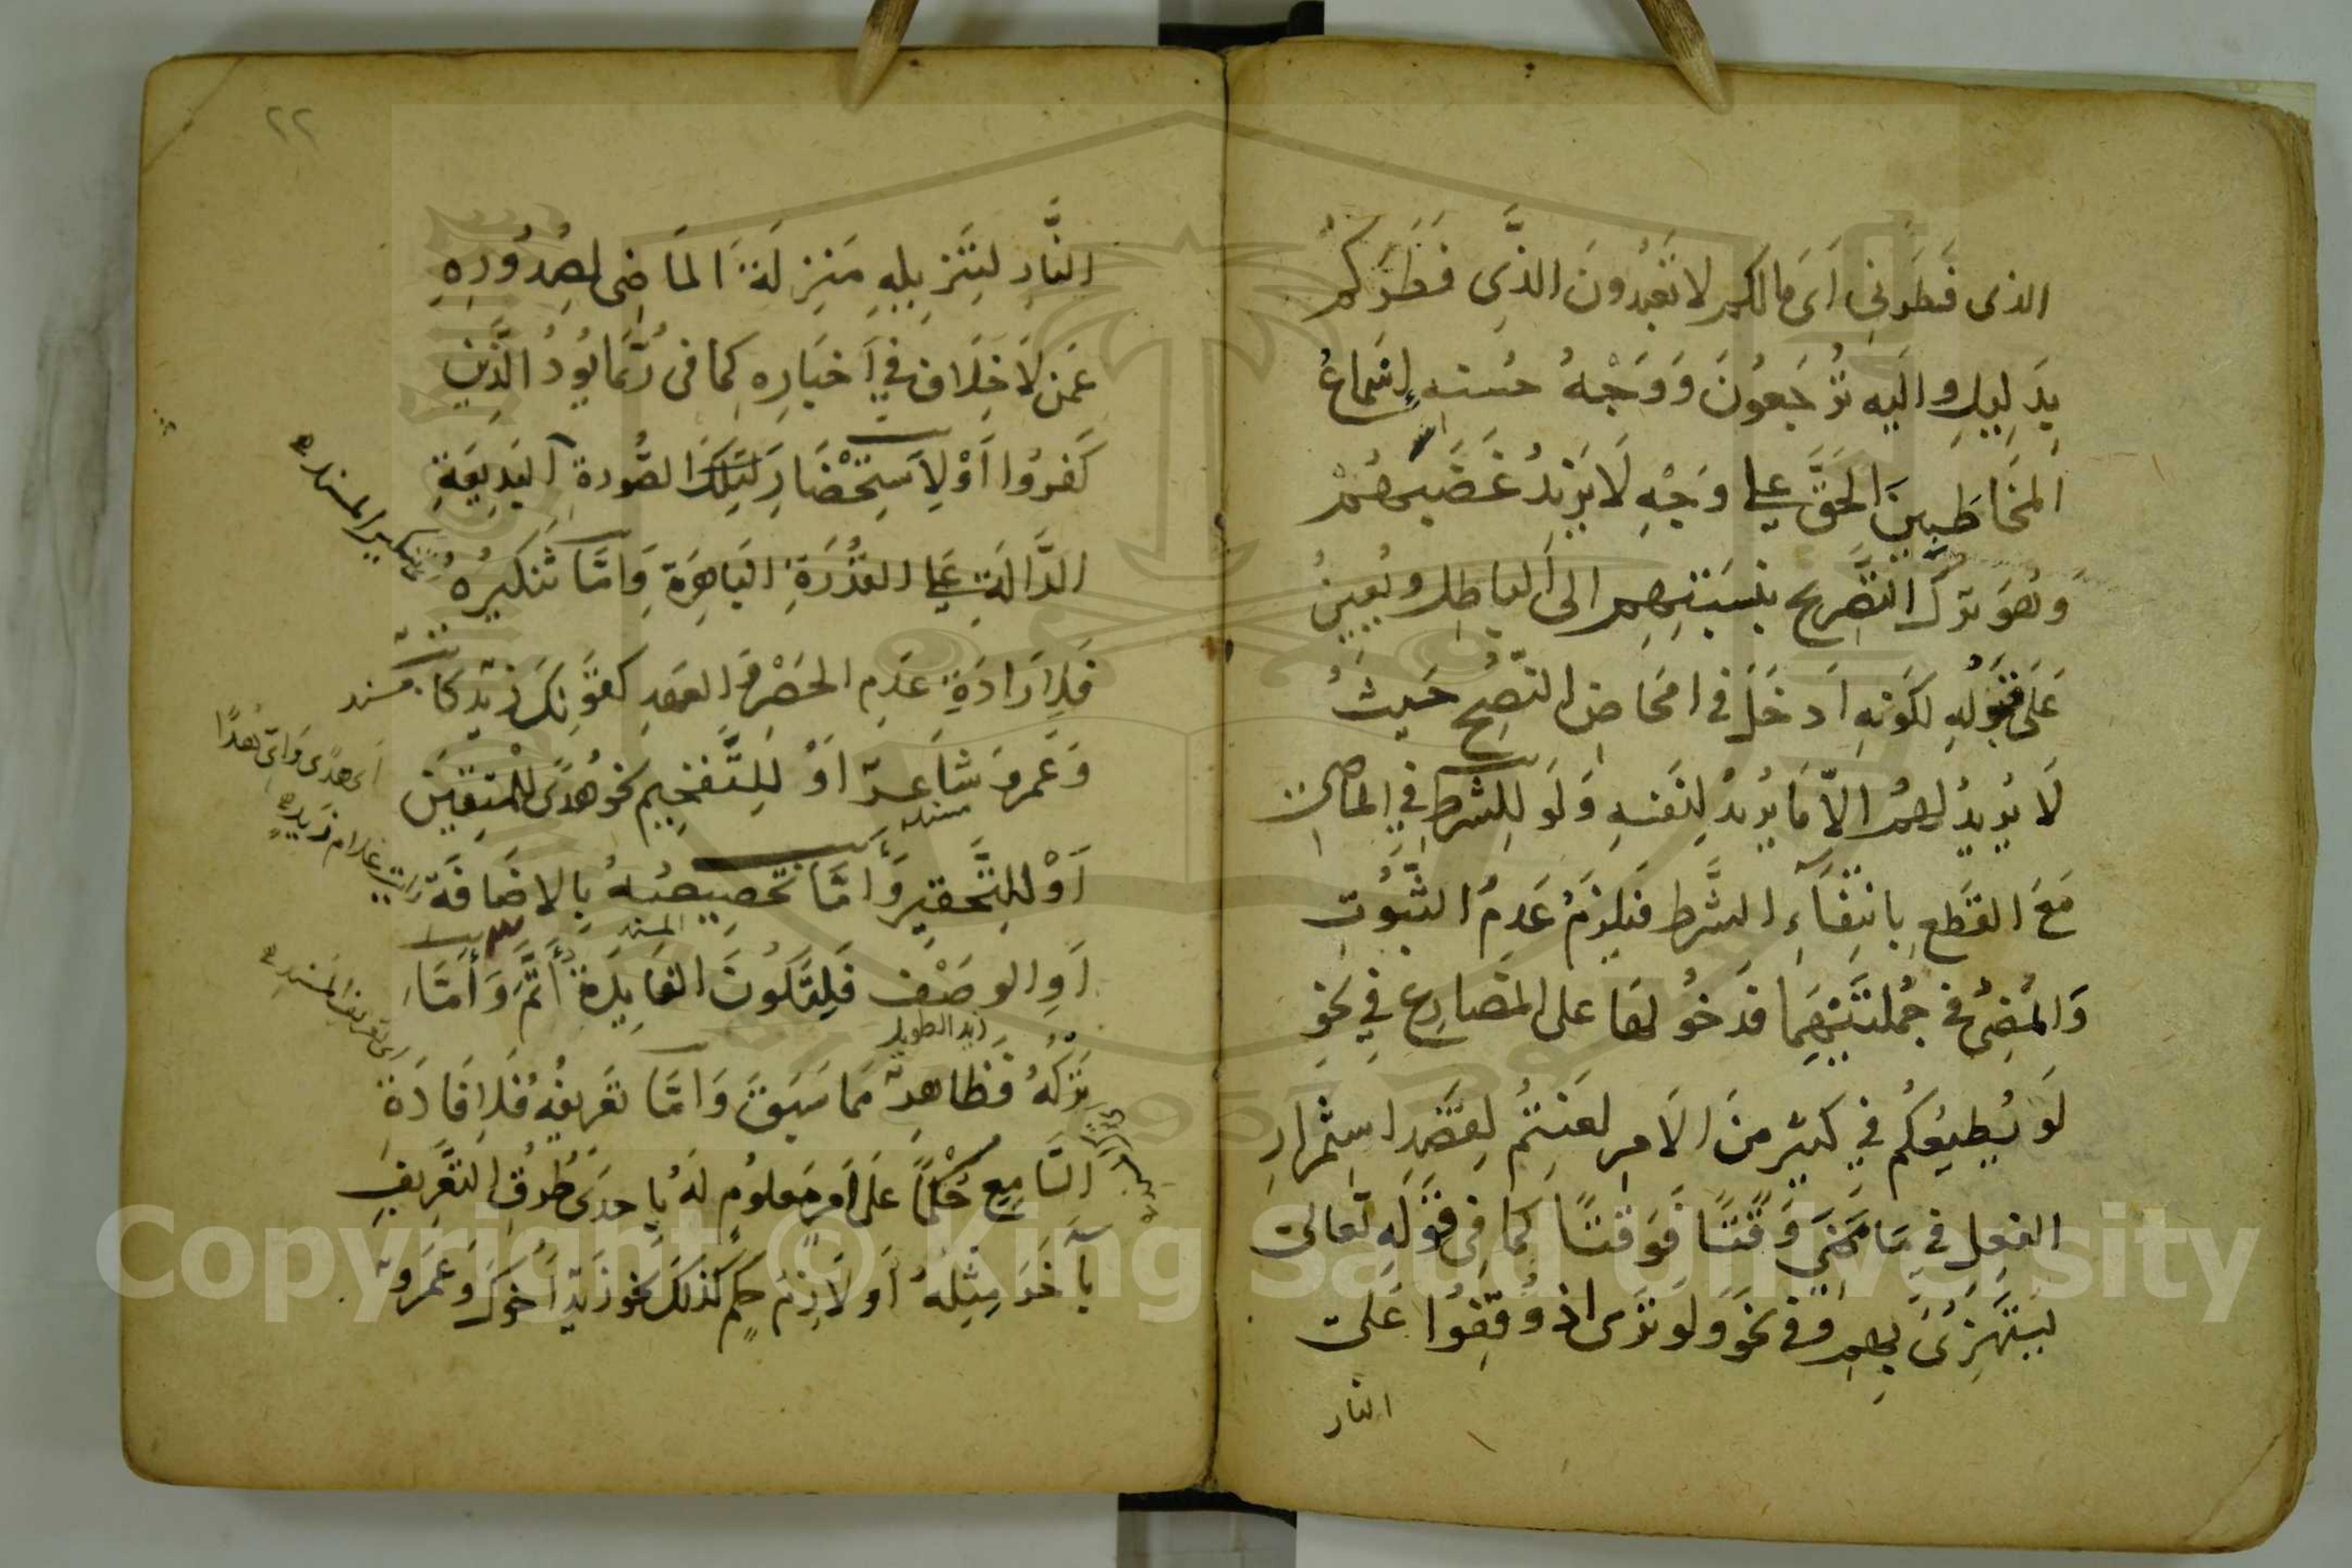 الذى فَطَرَنِى اَى مَالكم لا تَعْبُدُونَ الذِّى فَطَرَكُمْ
بِدَلِيلِ وَاليه تُرْجَعُونَ وَوَجْهُ حُسنهِ اِسْمَاعُ
المخَاطَبِينَ الحَقَّ عَلى وَجْهٍ لَا يَزِيْدُ غَضَبَهُمْ
وَهُوَ تَرْكُ التَّصْرِيح بِنِسْبَتِهِم الى البَاطِلِ وَيُعِينُ
عَلى قَبُولِهِ لِكَوْنِهِ اَدْخَلَ فى امحَاضِ النُّصْحِ حَيْثُ
لَا يُرِيدُ لَهُم اِلاَّ مَا يُرِيدُ لِنَفْسِهِ وَلَو لِلشَّرطِ فِي الماضى
مَعَ القَطْعِ بِانْتِفَآءِ الشَّرطِ فَيَلْزَمُ عَدَمُ الثُّبُوتِ
وَالمُضِىُّ فى جُمْلَتَيْهِمَا فَدخُولهَا على المضَارِعِ فِي نَحْوِ
لَو يُطِيعُكُم فِي كَثِيْرٍ مِنَ الاَمرِ لَعَنِتُّم لِقَصْدِ اسْتِمْرَارِ
الفِعلِ فِي مَا مَضَى وَقْتًا فَوَقْتًا كَما فِى قَوْلهِ تَعالى
يَسْتَهْزِئُ بِهِم وفى نحو وَلَو تَرَى اذْ وُقِفُوا عَلى
النار
٢٢
النَّارِ لِتَنْزِيلِهِ مَنْزِلَةَ المَاضِى لِصُدُوْرِهِ
عَمَّن لَا خِلَافَ فِي اَخْبَارِهِ كما فى رُبَّمَا يَوَدُّ الَّذِينَ
كَفَرُوا اَوْ لِاسْتِحْضَارِ تِلْكَ الصُّورةِ البَدِيعَةِ
الدَّالَّةِ عَلى القُدْرَةِ البَاهِرَةِ وَاَمَّا تَنْكِيرُهُ
تنكير المسند
فَلِاِرَادَةِ عَدَمِ الحَصْرِ وَالعَهْدِ كَقَوْلِكَ زَيْدٌ كَا
مسند
وَعَمْرٌو شَاعِرٌ اَوْ لِلتَّفْخِيمِ نَحو هُدًى لِلْمُتَّقِينَ
اى هدًى وَاىّ هُدًا
اَوْ لِلتَّحْقِيرِ وَاَمَّا تَخْصِيصُهُ بِالاِضَافَة
مسند
اَوِ الوَصْفِ فَلِتَكُونَ الفَايِدَةُ اَتَمَّ وَاَمَّا
المسند
زيد الطويل
تَرْكُهُ فَظَاهِرٌ مِمَّا سَبَقَ وَاَمَّا تَعْرِيفُهُ فَلِاِفَادَةِ
اى تعريف المسند
السَّامِعِ حُكْمًا عَلَى اَمرٍ مَعلومٍ لَهُ بِاِحدَى طُرُقِ التَّعْرِيفِ
بِآخَرَ مِثْلِهُ اَوْ لَازِمَ حكمٍ كَذلكَ نَحو زَيْدٌ اَخوكَ وعَمْرٌو